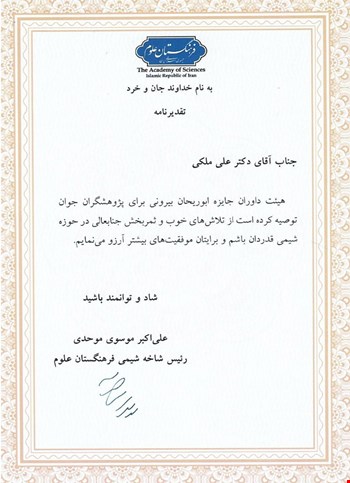 فرهنگستان علوم
The Academy of Sciences
Islamic Republic of Iran
به نام خداوند جان و خرد
تقدیرنامه
جناب آقای دکتر علی ملکی
هیئت داوران جایزه ابوریحان بیرونی برای پژوهشگران جوان
توصیه کرده است از تلاش‌های خوب و ثمربخش جنابعالی در حوزه
شیمی قدردان باشم و برایتان موفقیت‌های بیشتر آرزو می‌نمایم.
شاد و توانمند باشید
علی‌اکبر موسوی موحدی
رئیس شاخه شیمی فرهنگستان علوم